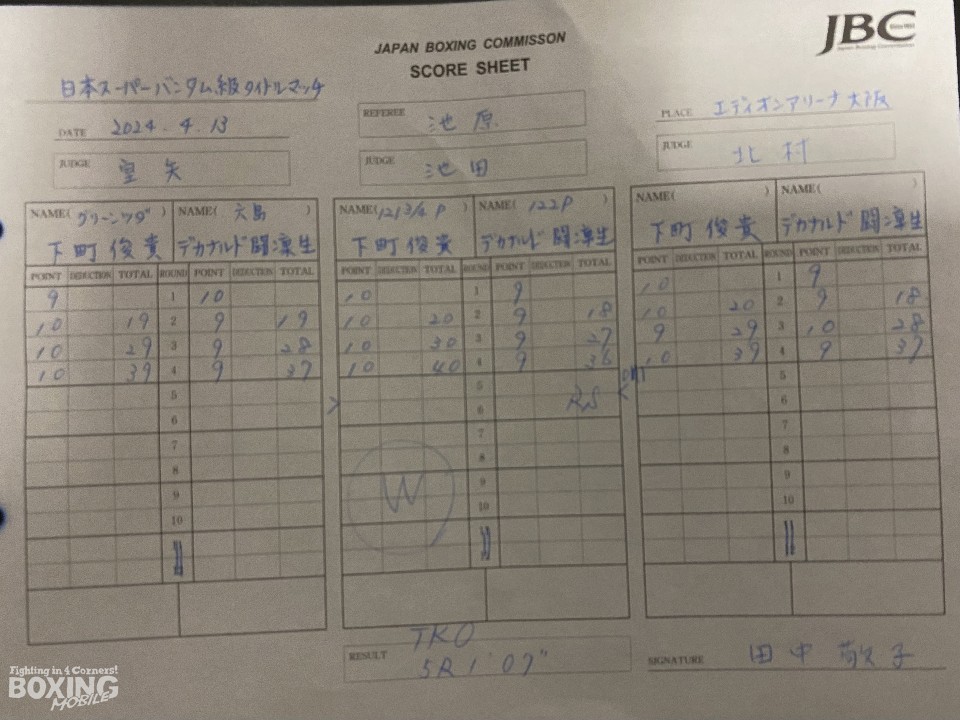 JAPAN BOXING COMMISSON
SCORE SHEET
JBC
Since 1952
Japan Boxing Commission
日本スーパーバンタム級タイトルマッチ
DATE 2024.4.13
REFEREE 池原
PLACE エディオンアリーナ大阪
JUDGE 堂矢
JUDGE 池田
JUDGE 北村
NAME( グリーンツダ ) NAME( 六島 )
下町俊貴 デカナルド闘凜生
POINT DEDUCTION TOTAL ROUND POINT DEDUCTION TOTAL
9 1 10
10 19 2 9 19
10 29 3 9 28
10 39 4 9 37
5
6
7
8
9
10
NAME( 121 3/4 P ) NAME( 122P )
下町俊貴 デカナルド闘凜生
POINT DEDUCTION TOTAL ROUND POINT DEDUCTION TOTAL
10 1 9
10 20 2 9 18
10 30 3 9 27
10 40 4 9 36
5
6 RS
7
8
9
10
W
NAME( ) NAME( )
下町俊貴 デカナルド闘凜生
POINT DEDUCTION TOTAL ROUND POINT DEDUCTION TOTAL
10 1 9
10 20 2 9 18
9 29 3 10 28
10 39 4 9 37
5
6
7
8
9
10
RESULT TKO
5R 1'07"
SIGNATURE 田中敬子
Fighting in 4 Corners!
BOXING
MOBILE